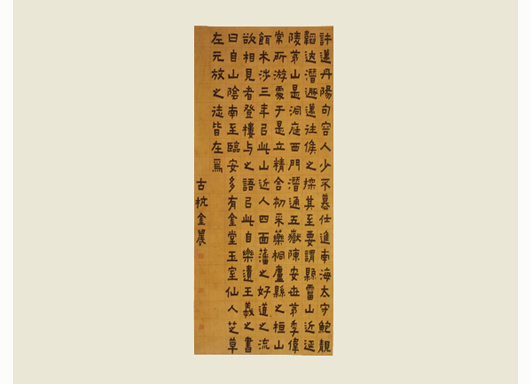 許邁丹陽句容人少不慕仕進南海太守鮑靚
韜迹潛遁邁往候之探其至要謂縣雷山近延
陵茅山是洞庭西門潛通五嶽陳安世茅季偉
常所游處于是立精舍初采藥桐廬縣之桓山
餌术涉三年㠯此山近人四面藩之好道之流
欲相見者登樓与之語㠯此自樂遺王羲之書
曰自山陰南至臨安多有金堂玉室仙人芝草
左元放之徒皆在焉
古杭金農